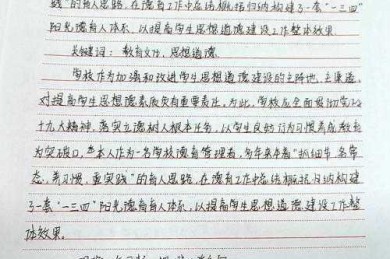 线"的育人思路，在德育工作中总结概括归纳构建了一套"一三四"
阳光德育育人体系，以提高学生思想道德建设工作整体效果。
关键词：教育文化，思想道德
学校作为加强和改进学生思想道德建设的主阵地、主渠道，
对提高学生思想道德素质负有重要责任。为此，学校应全面贯彻党的
十九大精神，落实立德树人根本任务，以学生良好行为习惯养成教育
为突破口，本人作为一名学校德育管理者，多年来本着"抓细节、名常
态、养习惯、重实践"的育人思路，在德育工作中总结概括归纳构建
了一套"一三四"阳光德育育人体系，以提高学生思想道德建设工作整
体效果。